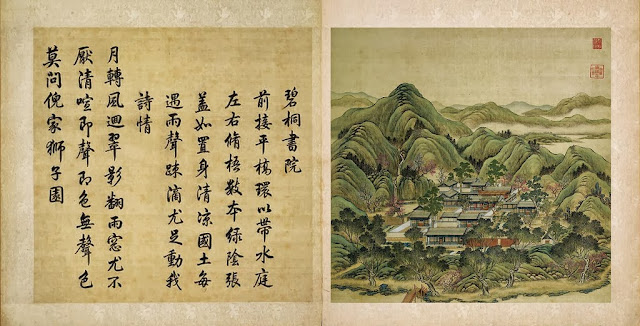 碧桐書院
前接平橋環以帶水庭
左右脩梧數本綠陰張
蓋如置身清涼國土每
遇雨聲踈滴尤足動我
詩情
月轉風迴翠影翻雨窓尤不
厭清喧即聲即色無聲色
莫問倪家獅子園